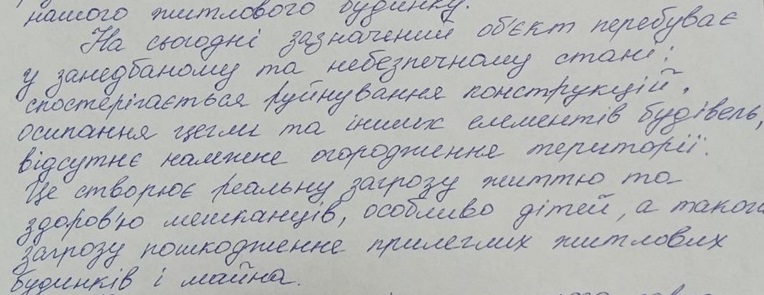 нашого житлового будинку.
На сьогодні зазначений об'єкт перебуває
у занедбаному та небезпечному стані:
спостерігається руйнування конструкцій,
осипання цегли та інших елементів будівель,
відсутнє належне огородження території.
Це створює реальну загрозу життю та
здоров'ю мешканців, особливо дітей, а також
загрозу пошкодження прилеглих житлових
будинків і майна.